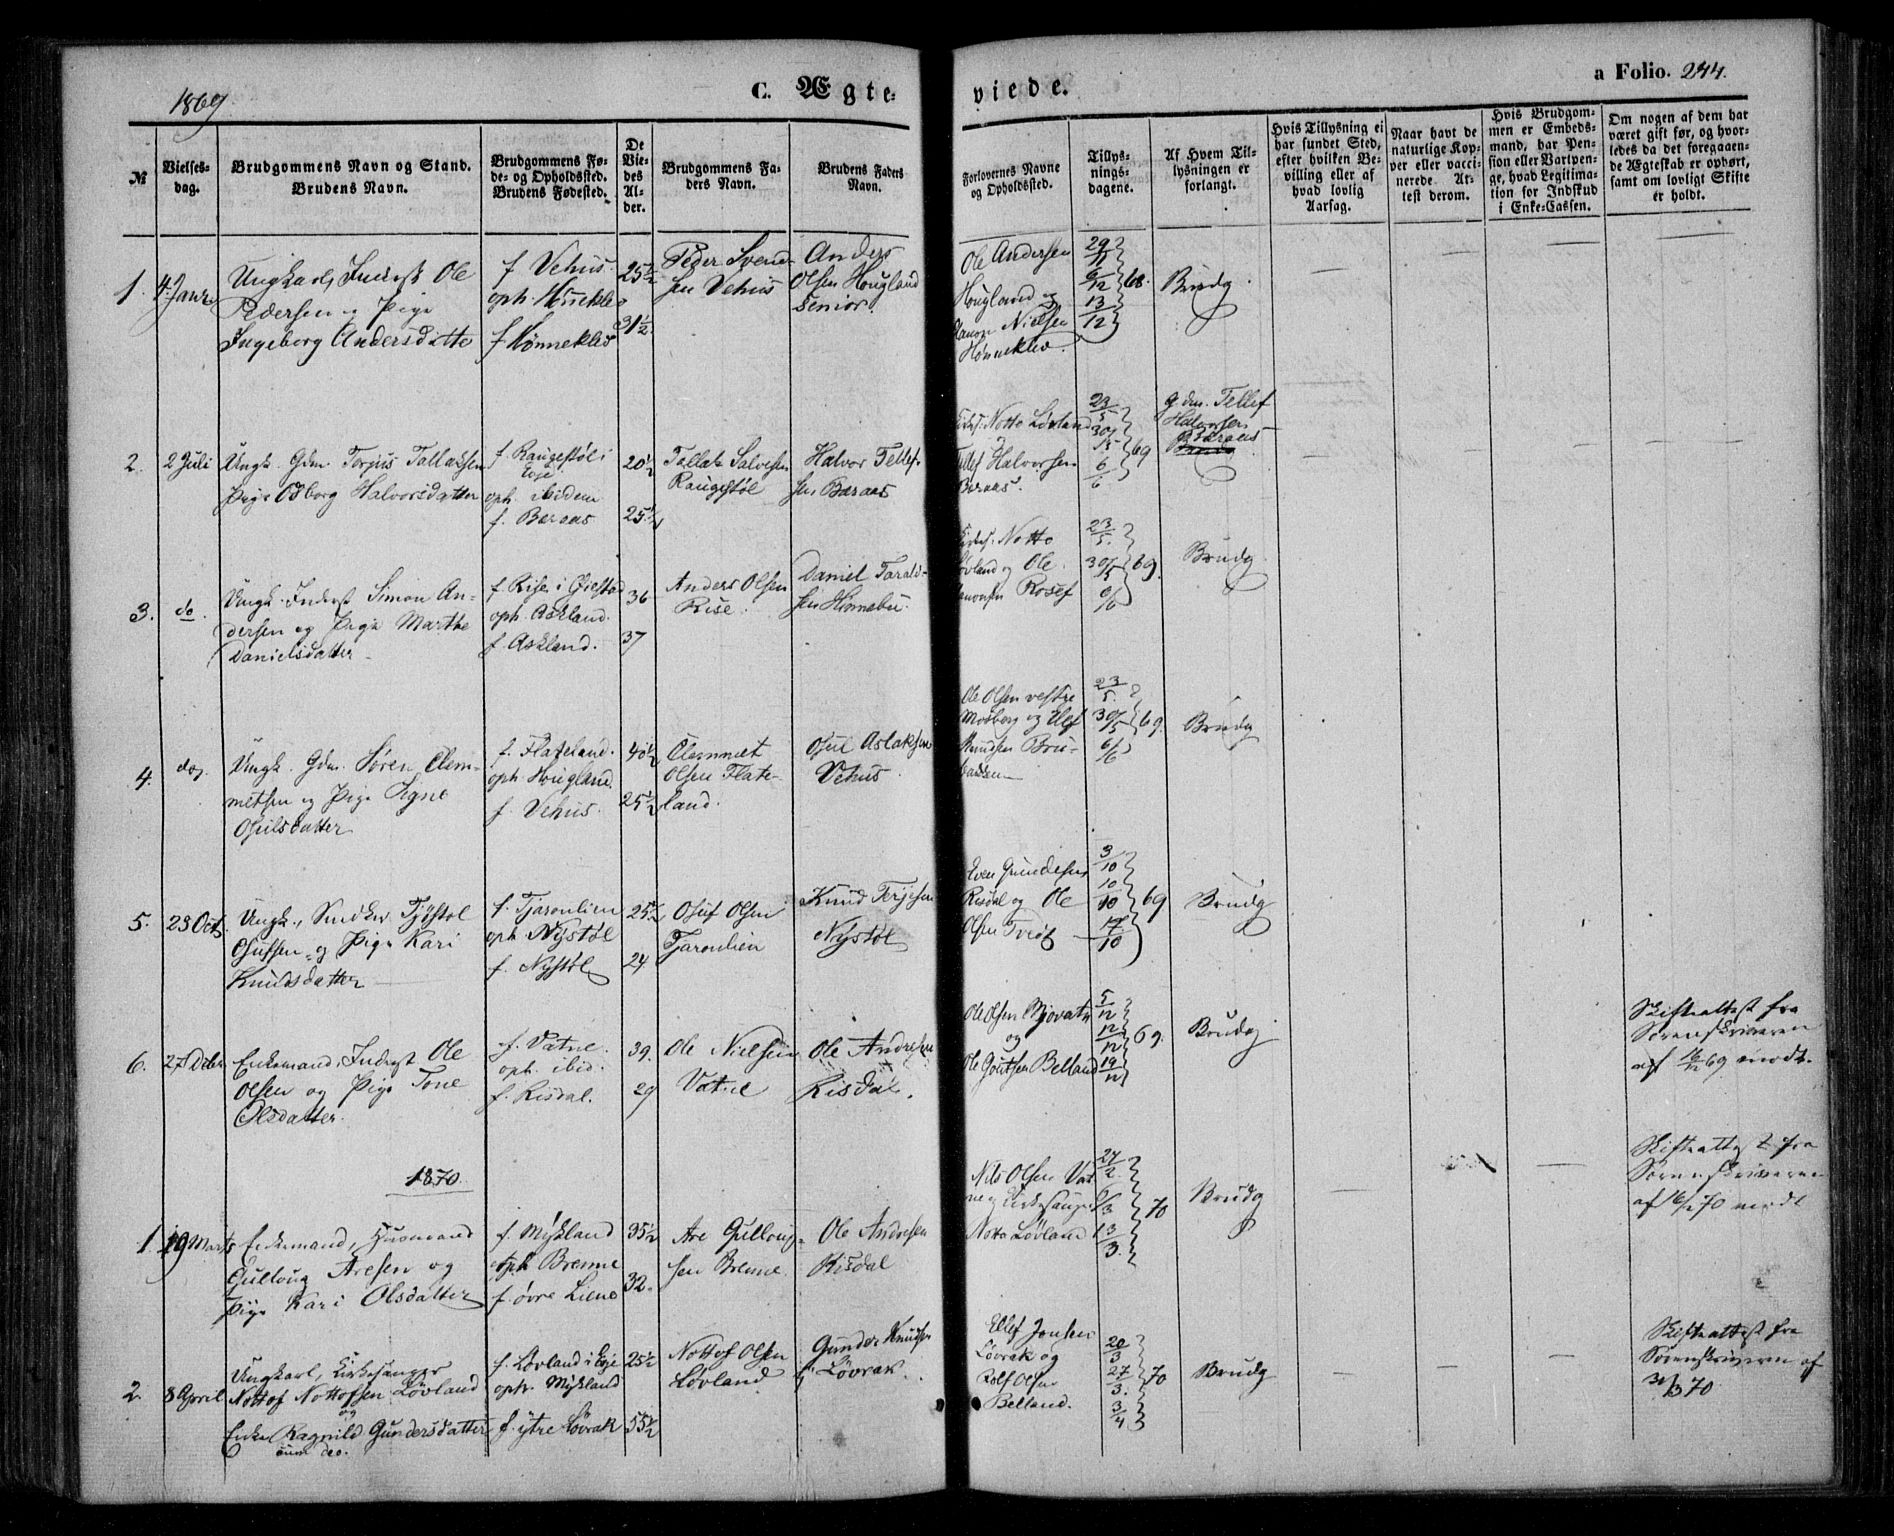 1869
C. Ægte-
№
Vielses-
dag.
Brudgommens Navn og Stand.
Brudens Navn.
Brudgommens Fø-
de- og Opholdssted.
Brudens Fødested.
De
Vie-
des
Al-
der.
Brudgommens Fa-
ders Navn.
Brudens Faders
Navn.
1. 4. Janr
Ungkarl, Inderst Ole
Pedersen og Pige
Ingeborg Andersdatter
f Vehus.
oph. Hønneklev
f Hønneklev
25½
31½.
Peder Svend-
sen Vehus
Anders
Olsen Hougland
senior.
2. 2 Juli
Ungk. Gdm Torjus Tallaksen
Pige Osborg Halvorsdatter
f. Raugestøl i
Evje
oph. ibidem
f. Baraas
20½
25½
Tallak Salvesen
Raugestøl
Halvor Tellef-
sen Baraas
3. do.
Ungk. Inderst Simon An-
dersen og Pige Marthe
Danielsdatter
f. Rise i Øiestad
oph. Askland.
f. Askland.
36
37
Anders Olsen
Rise.
Daniel Tarald-
sen
4. do,
Ungk. Gdm. Søren Clem-
metsen og Pige Agne
Osulsdatter
f. Flateland.
oph. Hougland.
f. Vehus.
40½
25½
Clemmet
Olsen Flate-
land.
Osul Aslaksen
Vehus.
5. 23 Oct.
Ungk., Smedker Tjøstol
Osufsen og Pige Kari
Knudsdatter
f. Tjaronlien
oph. Nystøl
f. Nystøl
25½
24
Osuf Olsen
Tjaronlien
Knud Terjesen
Nystøl
6. 27 Dcbr
Enkemand, Inderst Ole
Olsen og Pige Tone
Olsdatter.
f. Vatne.
oph. ibid.
f. Risdal.
39.
29
Ole Nielsen
Vatne
Ole Andresen
Risdal.
1870.
1. 19 Marts
Enkemand, Husmand
Gulloug Aresen og
Pige Kari Olsdatter
f. Mykland
oph Brenne
f. øvre Liene
35½
32.
Are Gulloug-
sen Brenne.
Ole Andresen
Risdal
2. 8 April
Ungkarl, Kirkesanger
Nottof Nottofsen Løvland
og
Enke Ragnild Gundersdatter
f. Løvland i Evje
oph. Mykland
f. ytre Løvrak
25½
55½
Nottof Olsen
Løvland
Gunder Knudsen
Løvrak.
viede.
a Folio. 244.
Forlovernes Navne
og Opholdssted.
Tillys-
nings-
dagene.
Af Hvem Til-
lysningen er
forlangt.
Hvis Tillysning ei
har fundet Sted,
efter hvilken Be-
villing eller af
hvad lovlig
Aarsag.
Naar havt de
naturlige Kop-
per eller vacci-
nerede. At-
test derom.
Hvis Brudgom-
men er Embeds-
mand, har Pen-
sion eller Vartpen-
ge, hvad Legitima-
tion for Indskud
i Enke-Cassen.
Om nogen af dem har
været gift før, og hvor-
ledes da det foregaaen-
de Ægteskab er ophørt,
samt om lovligt Skifte
er holdt.
Ole Andersen
Hougland og
Nielsen
Hønneklev.
29/11
6/12 68.
13/12
Brudg.
Notto Løvland
Tellef Halvorsen
Baraas.
23/5
30/5 69
6/6
Gdm. Tellef
Halvorsen
Baraas
Brudg
Notto
Løvland og Ole
Rosef
23/5.
30/5 69.
6/6
Brudg.
Ole Olsen vestre
Mosberg og Elef
Knudsen
23/5.
30/5 69.
6/6
Brudg
Even Gundersen
Risdal og Ole
Olsen Tveit
3/10
10/10 69
17/10
Brudg
Ole Olsen Bjorvatn
og
Ole Goutsen Belland
5/12
12/12 69.
19/12
Brudg
Skifteattest fra
Sorenskriveren
af 16/12 69 modt.
Nils Olsen Vat-
ne og Kirkesanger
Notto Løvland
27/2
6/3 70
13/3.
Brudg
Skifteattest fra
Sorenskriveren
af 16/2 70 modt
Ellef Jonsen
Løvrak og
Rolf Olsen
Belland.
20/3
27/3. 70
3/4
Brudg
Skifteattest fra
Sorenskriveren af
31/3 70